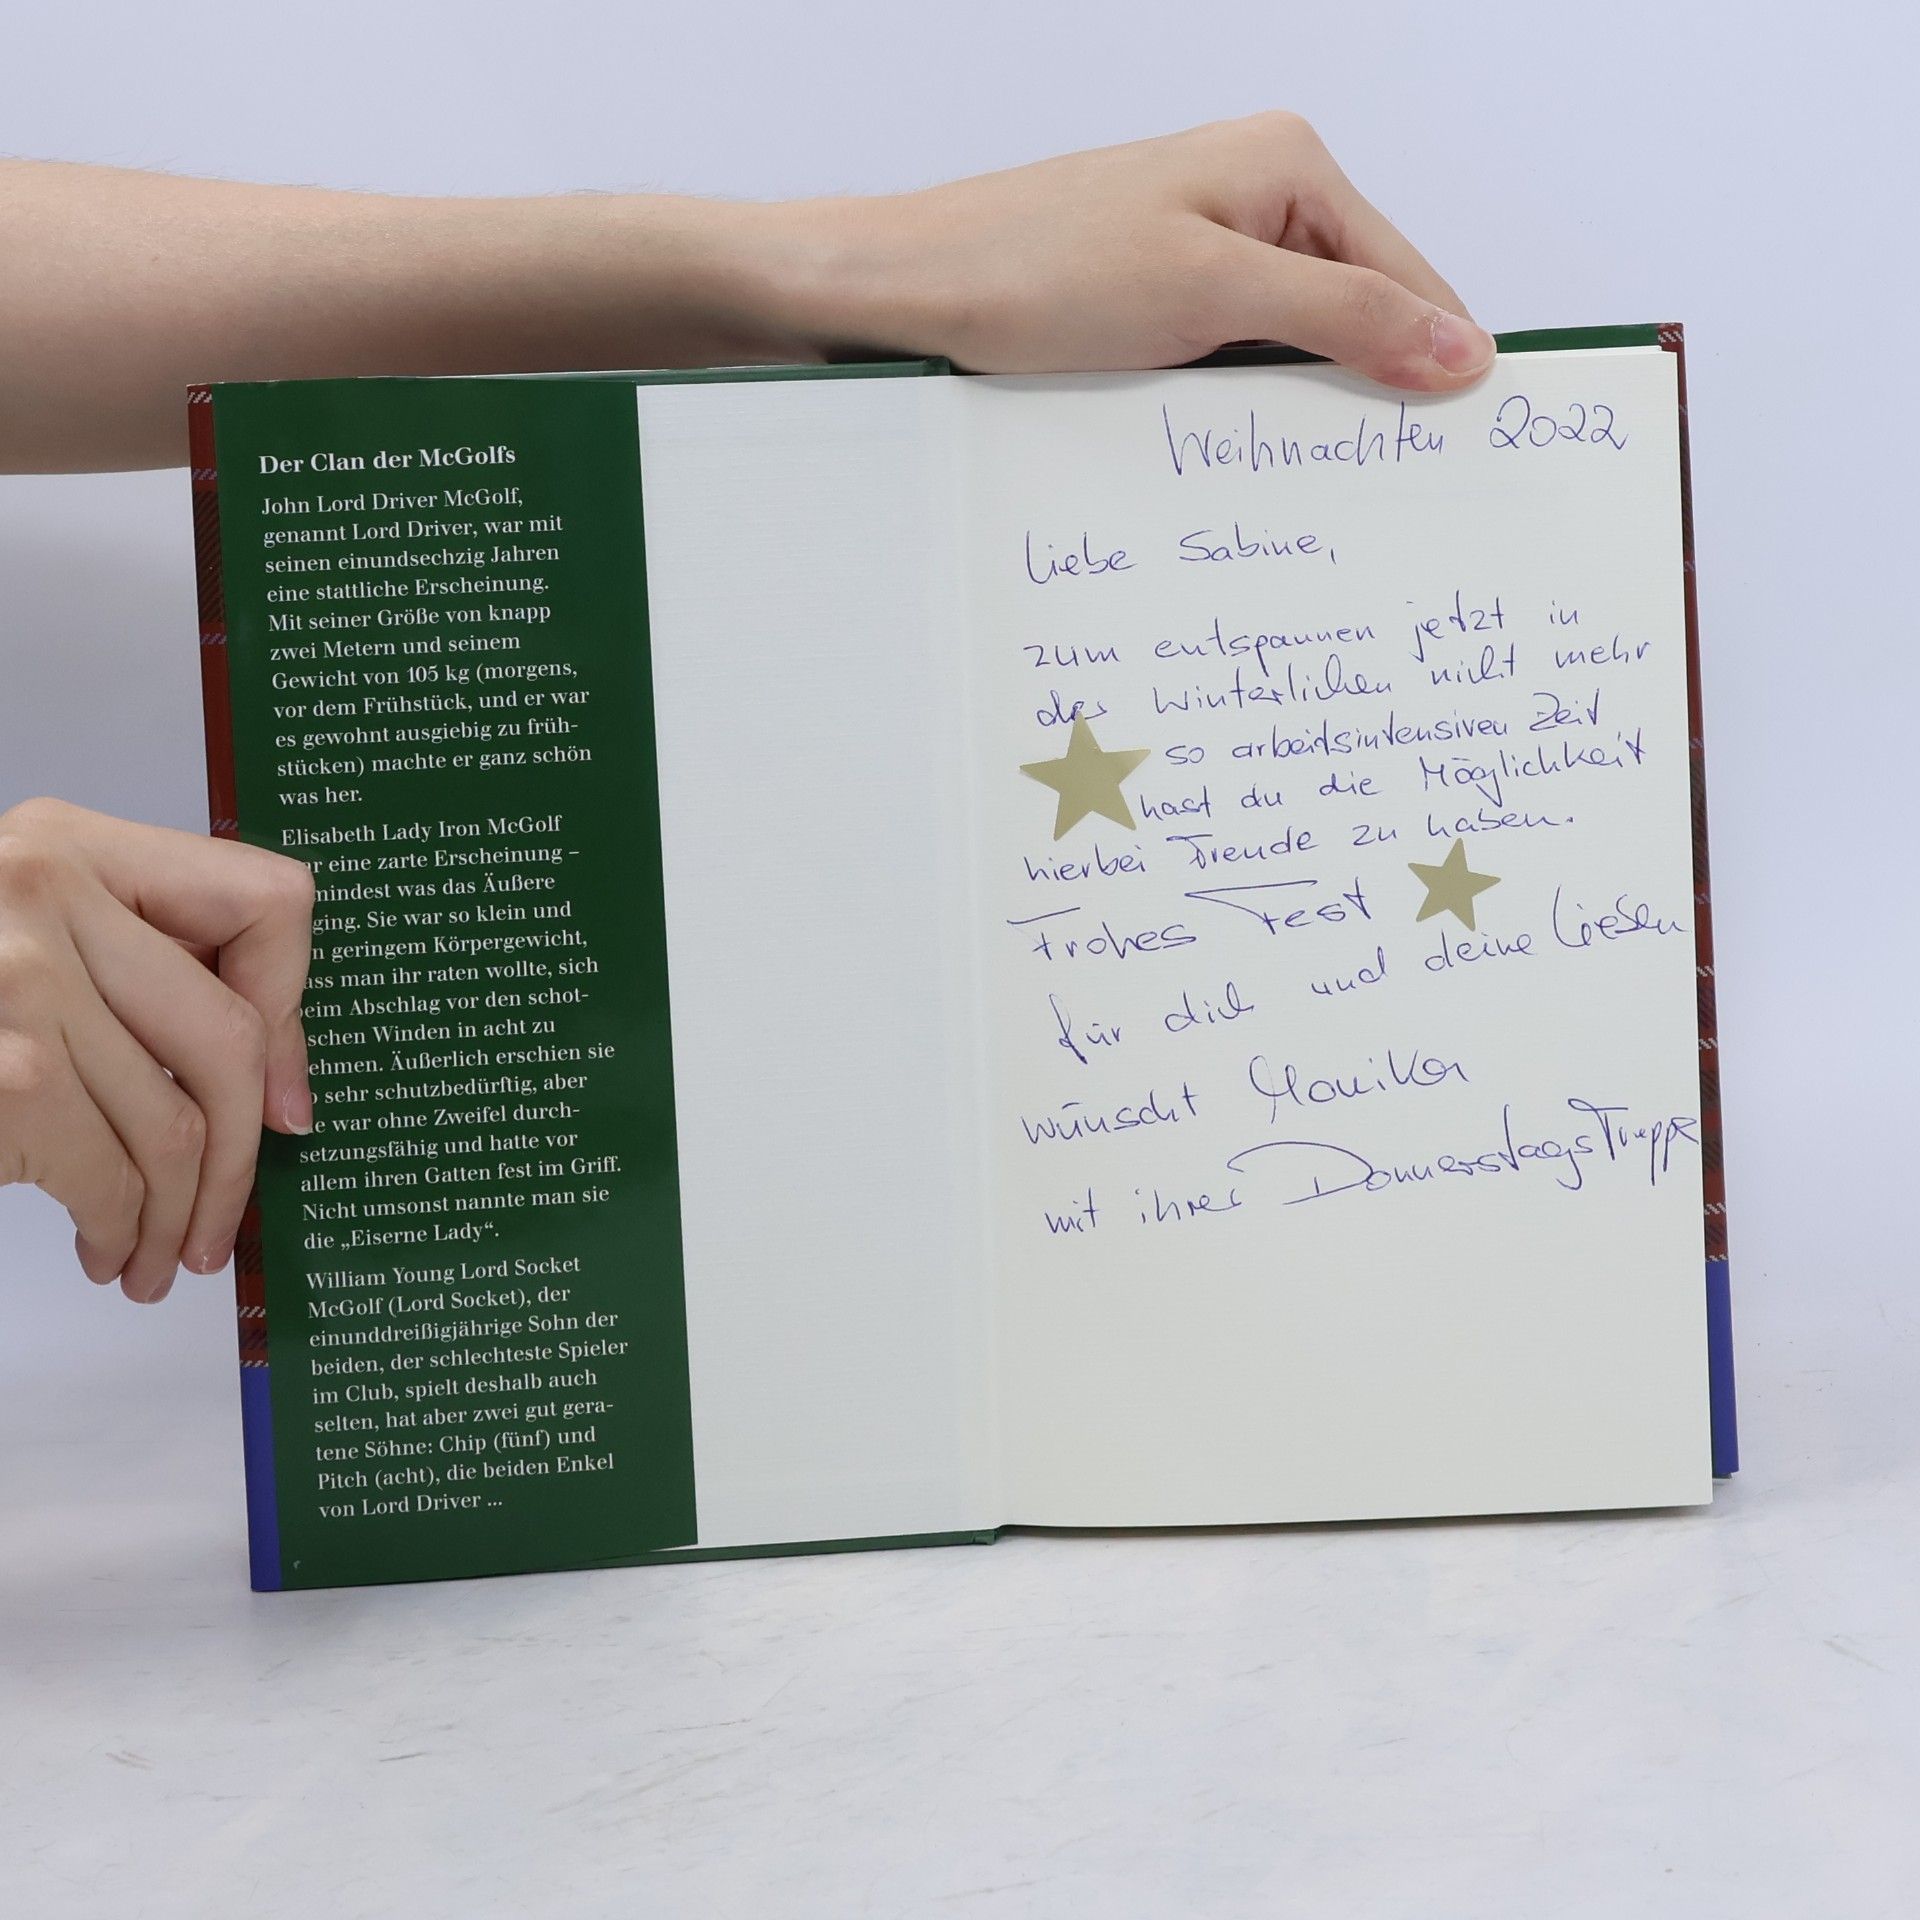 Der Clan der McGolfs
John Lord Driver McGolf,
genannt Lord Driver, war mit
seinen einundsechzig Jahren
eine stattliche Erscheinung.
Mit seiner Größe von knapp
zwei Metern und seinem
Gewicht von 105 kg (morgens,
vor dem Frühstück, und er war
es gewohnt ausgiebig zu früh-
stücken) machte er ganz schön
was her.
Elisabeth Lady Iron McGolf
ar eine zarte Erscheinung –
mindest was das Äußere
ging. Sie war so klein und
n geringem Körpergewicht,
ass man ihr raten wollte, sich
eim Abschlag vor den schot-
schen Winden in acht zu
ehmen. Äußerlich erschien sie
o sehr schutzbedürftig, aber
ie war ohne Zweifel durch-
setzungsfähig und hatte vor
allem ihren Gatten fest im Griff.
Nicht umsonst nannte man sie
die „Eiserne Lady“.
William Young Lord Socket
McGolf (Lord Socket), der
einunddreißigjährige Sohn der
beiden, der schlechteste Spieler
im Club, spielt deshalb auch
selten, hat aber zwei gut gera-
tene Söhne: Chip (fünf) und
Pitch (acht), die beiden Enkel
von Lord Driver ...
Weihnachten 2022
Liebe Sabine,
zum entspannen jetzt in
der winterlichen nicht mehr
so arbeitsintensiven Zeit
hast du die Möglichkeit
hierbei Freude zu haben.
Frohes Fest
für dich und deine Liesen
wünscht Monika
mit ihrer DonnerstagsTruppe